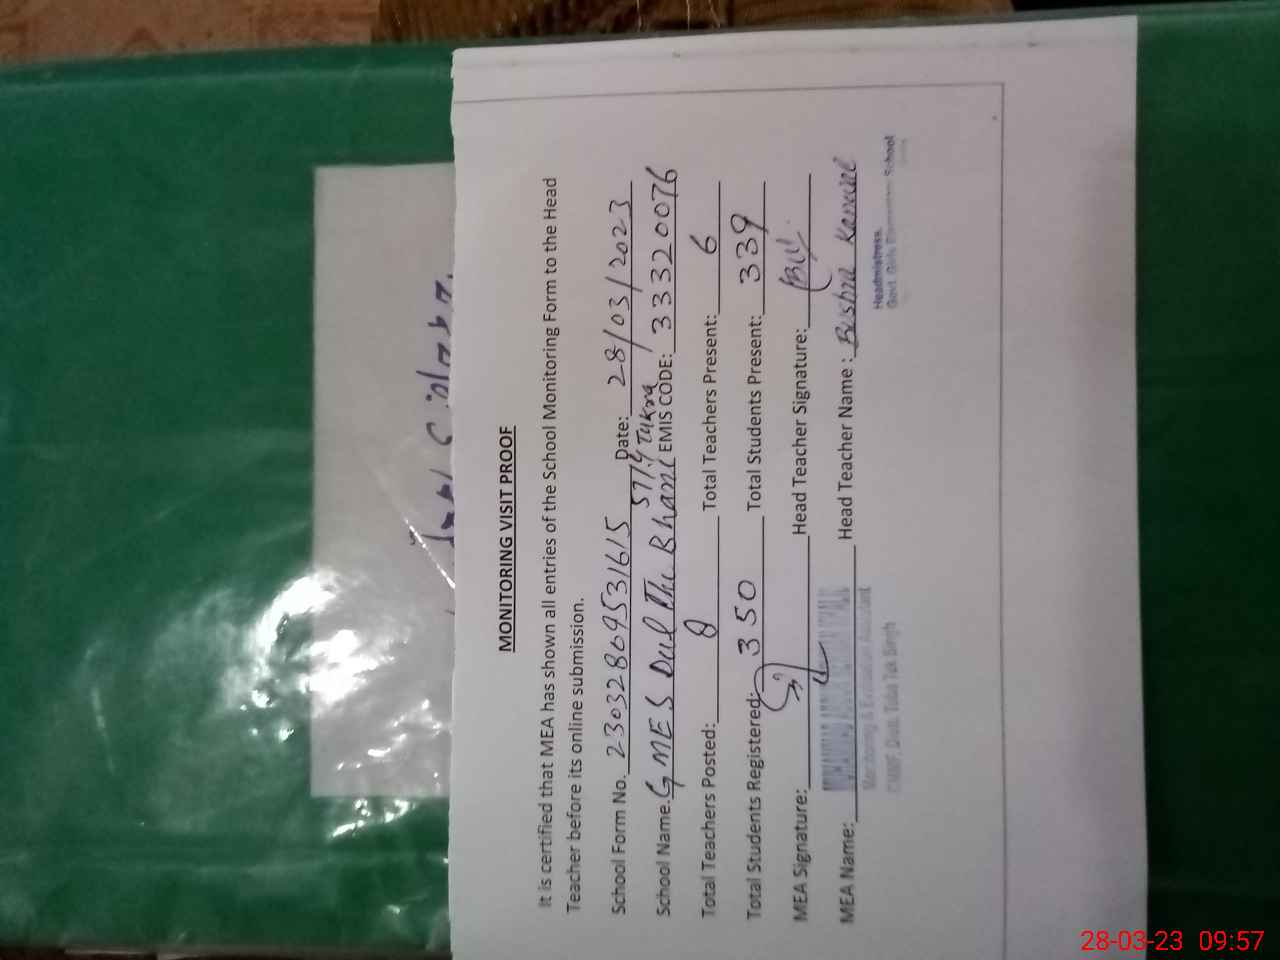 MONITORING VISIT PROOF
It is certified that MEA has shown all entries of the School Monitoring Form to the Head
Teacher before its online submission.
School Form No. 23032809531615 Date: 28/03/2023
577/4 Tukra
School Name. GMES Dul Bhani EMIS CODE: 33320076
Total Teachers Posted: 8 Total Teachers Present: 6
Total Students Registered: 350 Total Students Present: 339
MEA Signature: Head Teacher Signature:
MEA Name: Head Teacher Name : Bushra Kanwal
Monitoring & Evaluation Assistant
Distt. Toba Tek Singh
Headmistress
Govt. Girls Elementary School
28-03-23 09:57